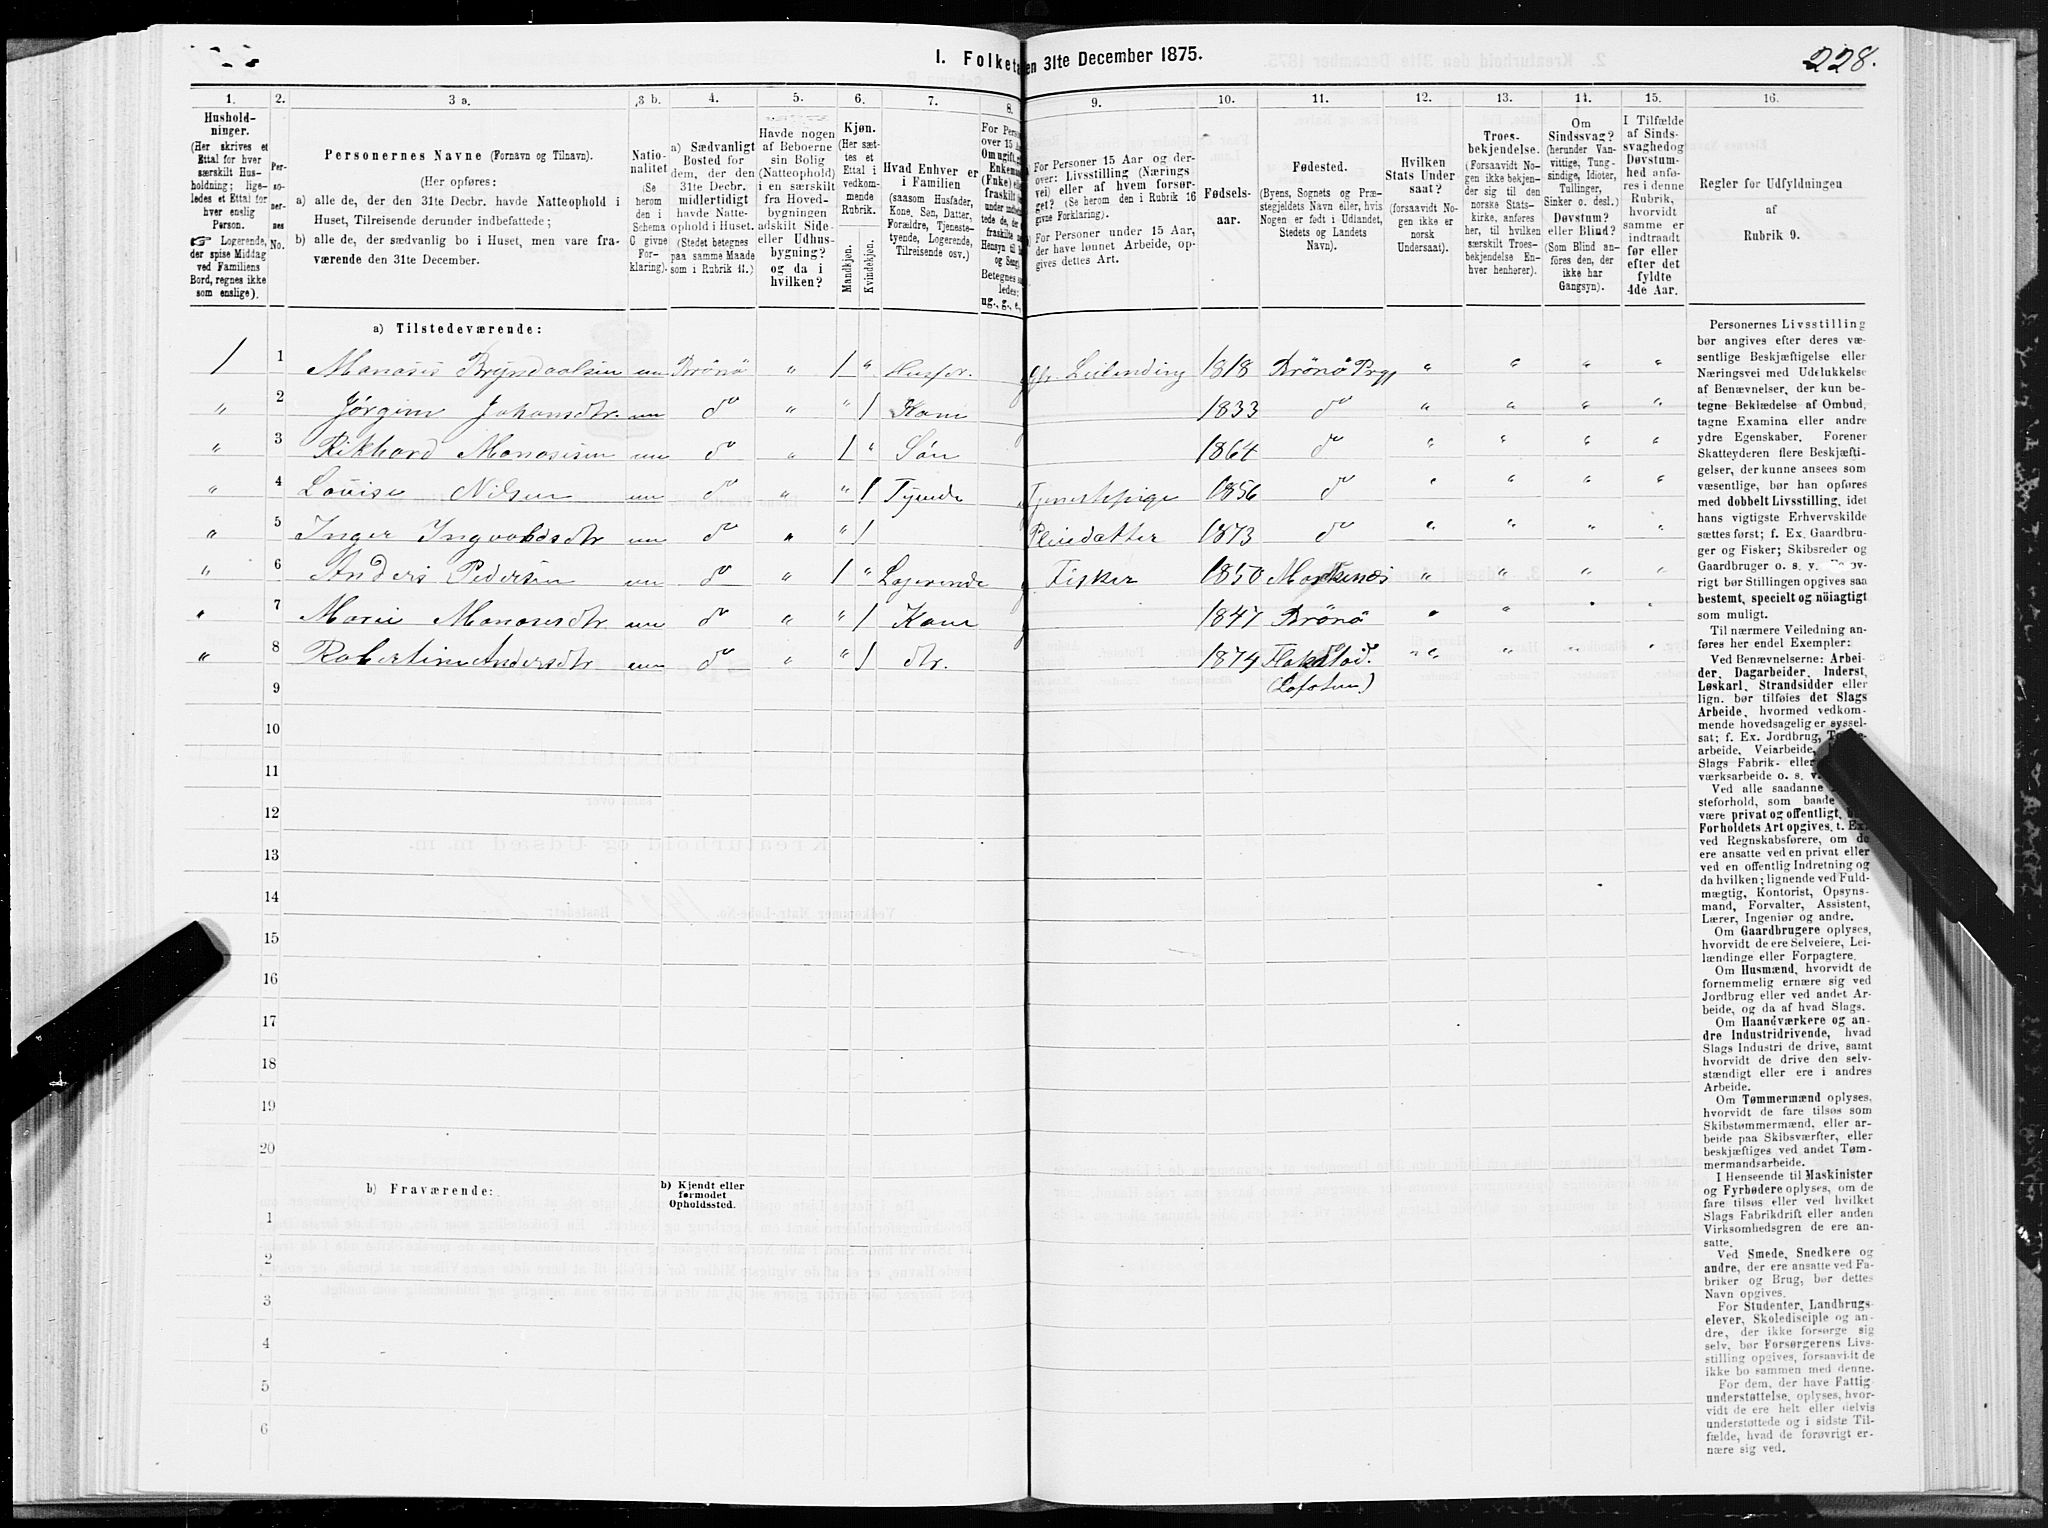 I. Folketa en 31te December 1875.
228.
1. 2. 3 a. 3 b. 4. 5. 6. 7. 8. 9. 10. 11. 12. 13. 14. 15. 16.
Hushold-
ninger.
(Her skrives et
Ettal for hver
særskilt Hus-
holdning; lige-
ledes et Ettal for
hver enslig
Person.
☞ Logerende,
der spise Middag
ved Familiens
Bord, regnes ikke
som enslige).
Per-
so-
ner-
nes
No.
Personernes Navne (Fornavn og Tilnavn).
(Her opføres:
a) alle de, der den 31te Decbr. havde Natteophold i
Huset, Tilreisende derunder indbefattede;
b) alle de, der sædvanlig bo i Huset, men vare fra-
værende den 31te December.
Natio-
nalitet
(Se
herom
den i
Schema
C givne
For-
klaring).
a) Sædvanligt
Bosted for
dem, der den
31te Decbr.
midlertidigt
havde Natte-
ophold i Huset.
(Stedet betegnes
paa samme Maade
som i Rubrik 11.)
Havde nogen
af Beboerne
sin Bolig
(Natteophold)
i en særskilt
fra Hoved-
bygningen
adskilt Side-
eller Udhus-
bygning?
og da i
hvilken?
Kjøn.
(Her sæt-
tes et
Ettal i
vedkom-
mende
Rubrik.
Mandkjøn.
Kvindekjøn.
Hvad Enhver er
i Familien
(saasom Husfader,
Kone, Søn, Datter,
Forældre, Tjeneste-
tyende, Logerende,
Tilreisende osv.)
For Pers
over 15 A
Om ugift, g
Enkema
(Enke) el
fraskilt
under
tede de,
fraskilte
Hensyn til
og Seng
Betegnes s
ledes:
ug., g., e.,
For Personer 15 Aar og der-
over: Livsstilling (Nærings
vei) eller af hvem forsør-
get? (Se herom den i Rubrik 16
givne Forklaring).
For Personer under 15 Aar,
der have lønnet Arbeide, op-
gives dettes Art.
Fødsels-
aar.
Fødested.
(Byens, Sognets og Præ-
stegjeldets Navn eller, hvis
Nogen er født i Udlandet,
Stedets og Landets
Navn).
Hvilken
Stats Under
saat?
(forsaavidt No-
gen ikke er
norsk
Undersaat).
Troes-
bekjendelse.
(Forsaavidt No-
gen ikke bekjen-
der sig til den
norske Stats-
kirke, anføres
her, til hvilken
særskilt Troes-
bekjendelse En-
hver henhører).
Om
Sindssvag?
(herunder Van-
vittige, Tung-
sindige, Idioter,
Tullinger,
Sinker o. desl.)
Døvstum?
eller Blind?
(Som Blind an-
føres den, der
ikke har
Gangsyn).
I Tilfælde
af Sinds-
svaghed og
Døvstum-
hed anfø-
res i denne
Rubrik,
hvorvidt
samme er
indtraadt
før eller
efter det
fyldte
4de Aar.
Regler for Udfyldningen
af
Rubrik 9.
a) Tilstedeværende:
1 1 Manasis Bryndaalsen nn Brönö " 1 " Husfr. g Leilending 1818 Brönö Prgj " " " "
" 2 Jørgine Johansdtr. nn do " " 1 Kone g 1833 do " " " "
" 3 Rikhard Manasisen nn do " 1 " Søn 1864 do " " " "
" 4 Louise Nilsen nn do " " 1 Tyende Tjenestepige 1856 do " " " "
" 5 Inger Ingvaldsdtr nn do " " 1 Pleiedatter 1873 do " " " "
" 6 Anders Pedersen nn do " 1 " Logerende g Fisker 1850 Moskenæs " " " "
" 7 Marie Manasesdtr nn do " " 1 Kone g 1847 Brönö " " " "
" 8 Robertine Andersdtr nn do " " 1 dtr. 1874 Flakstad. " " " "
(Lofoten)
9
10
11
12
13
14
15
16
17
18
19
20
b) Fraværende:
b) Kjendt eller
formodet
Opholdssted.
1
2
3
4
5
6
Personernes Livsstilling
bør angives efter deres væ-
sentlige Beskjæftigelse eller
Næringsvei med Udelukkelse
af Benævnelser, der kun be-
tegne Beklædelse af Ombud,
tagne Examina eller andre
ydre Egenskaber. Forener
Skatteyderen flere Beskjæfti-
gelser, der kunne ansees som
væsentlige, bør han opføres
med dobbelt Livsstilling, idet
hans vigtigste Erhvervskilde
sættes først; f. Ex. Gaardbru-
ger og Fisker; Skibsreder og
Gaardbruger o. s. v. Forøv-
rigt bør Stillingen opgives saa
bestemt, specielt og nöiagtigt
som muligt.
Til nærmere Veiledning an-
føres her endel Exempler:
Ved Benævnelserne: Arbei-
der, Dagarbeider, Inderst,
Løskarl, Strandsidder eller
lign. bør tilføies det Slags
Arbeide, hvormed vedkom-
mende hovedsagelig er syssel-
sat; f. Ex. Jordbrug,
arbeide, Veiarbeide,
Slags Fabrik- eller
værksarbeide o. s. v.
Ved alle saadanne
steforhold, som baade
være privat og offentligt,
Forholdets Art opgives, t. Ex.
ved Regnskabsførere, om de
ere ansatte ved en privat eller
ved en offentlig Indretning og
da hvilken; lignende ved Fuld-
mægtig, Kontorist, Opsyns-
mand, Forvalter, Assistent,
Lærer, Ingeniør og andre.
Om Gaardbrugere oplyses,
hvorvidt de ere Selveiere, Lei-
lændinge eller Forpagtere.
Om Husmænd, hvorvidt de
fornemmelig ernære sig ved
Jordbrug eller ved andet Ar-
beide, og da af hvad Slags.
Om Haandværkere og an-
dre Industridrivende, hvad
Slags Industri de drive, samt
hvorvidt de drive den selv-
stændigt eller ere i andres
Arbeide.
Om Tømmermænd oplyses,
hvorvidt de fare tilsøs som
Skibstømmermænd, eller ar-
beide paa Skibsværfter, eller
beskjæftiges ved andet Tøm-
mermandsarbeide.
I Henseende til Maskinister
og Fyrbødere oplyses, om de
fare tilsøs eller ved hvilket
Slags Fabrikdrift eller anden
Virksomhedsgren de ere an-
satte.
Ved Smede, Snedkere og
andre, der ere ansatte ved Fa-
briker og Brug, bør dettes
Navn opgives.
For Studenter, Landbrugs-
elever, Skoledisciple og an-
dre, der ikke forsørge sig
selv, bør Forsørgerens Livs-
stilling opgives, forsaavidt de
ikke bo sammen med denne.
For dem, der have Fattig-
understøttelse, oplyses, hvor-
vidt de ere helt eller delvis
understøttede og i sidste Til-
fælde, hvad de forøvrigt er-
nære sig ved.